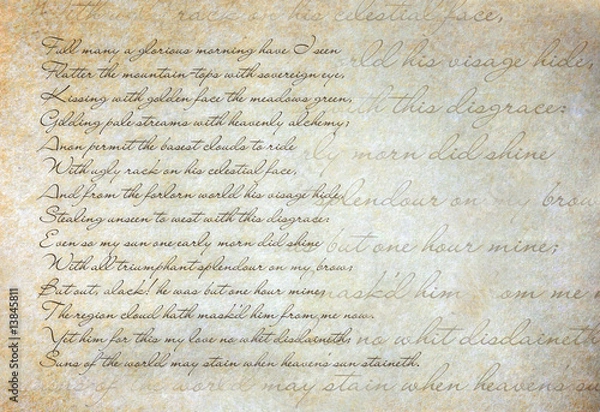 Full many a glorious morning have I seen
Flatter the mountain-tops with sovereign eye,
Kissing with golden face the meadows green,
Gilding pale streams with heavenly alchemy;
Anon permit the basest clouds to ride
With ugly rack on his celestial face,
And from the forlorn world his visage hide,
Stealing unseen to west with this disgrace:
Even so my sun one early morn did shine
With all triumphant splendour on my brow;
But out, alack! he was but one hour mine;
The region cloud hath mask'd him from me now.
Yet him for this my love no whit disdaineth;
Suns of the world may stain when heaven's sun staineth.
With ugly rack on his celestial face,
orld his visage hide,
th this disgrace:
rly morn did shine
splendour on my brow
but one hour mine;
mask'd him om me n
no whit disdaineth
Suns of the world may stain when heaven's su
Adobe Stock | #13845811